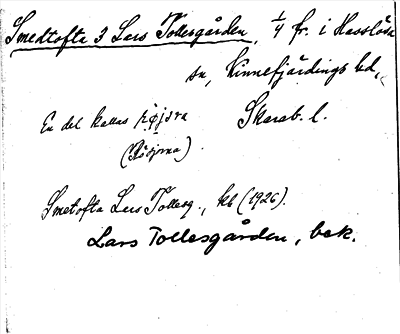 Smedtofta 3 Lars Tollesgården, 1/4 fr. i Hasslösa
sn, Kinnefjärdings hd,
En del kallas røjora Skarab. l.
(Röjorna)
Smetofta Lars Tollesg., kb (1926).
Lars Tollesgården, bek.